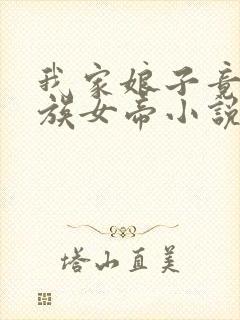 我家娘子竟
族女帝小说
塔山直美